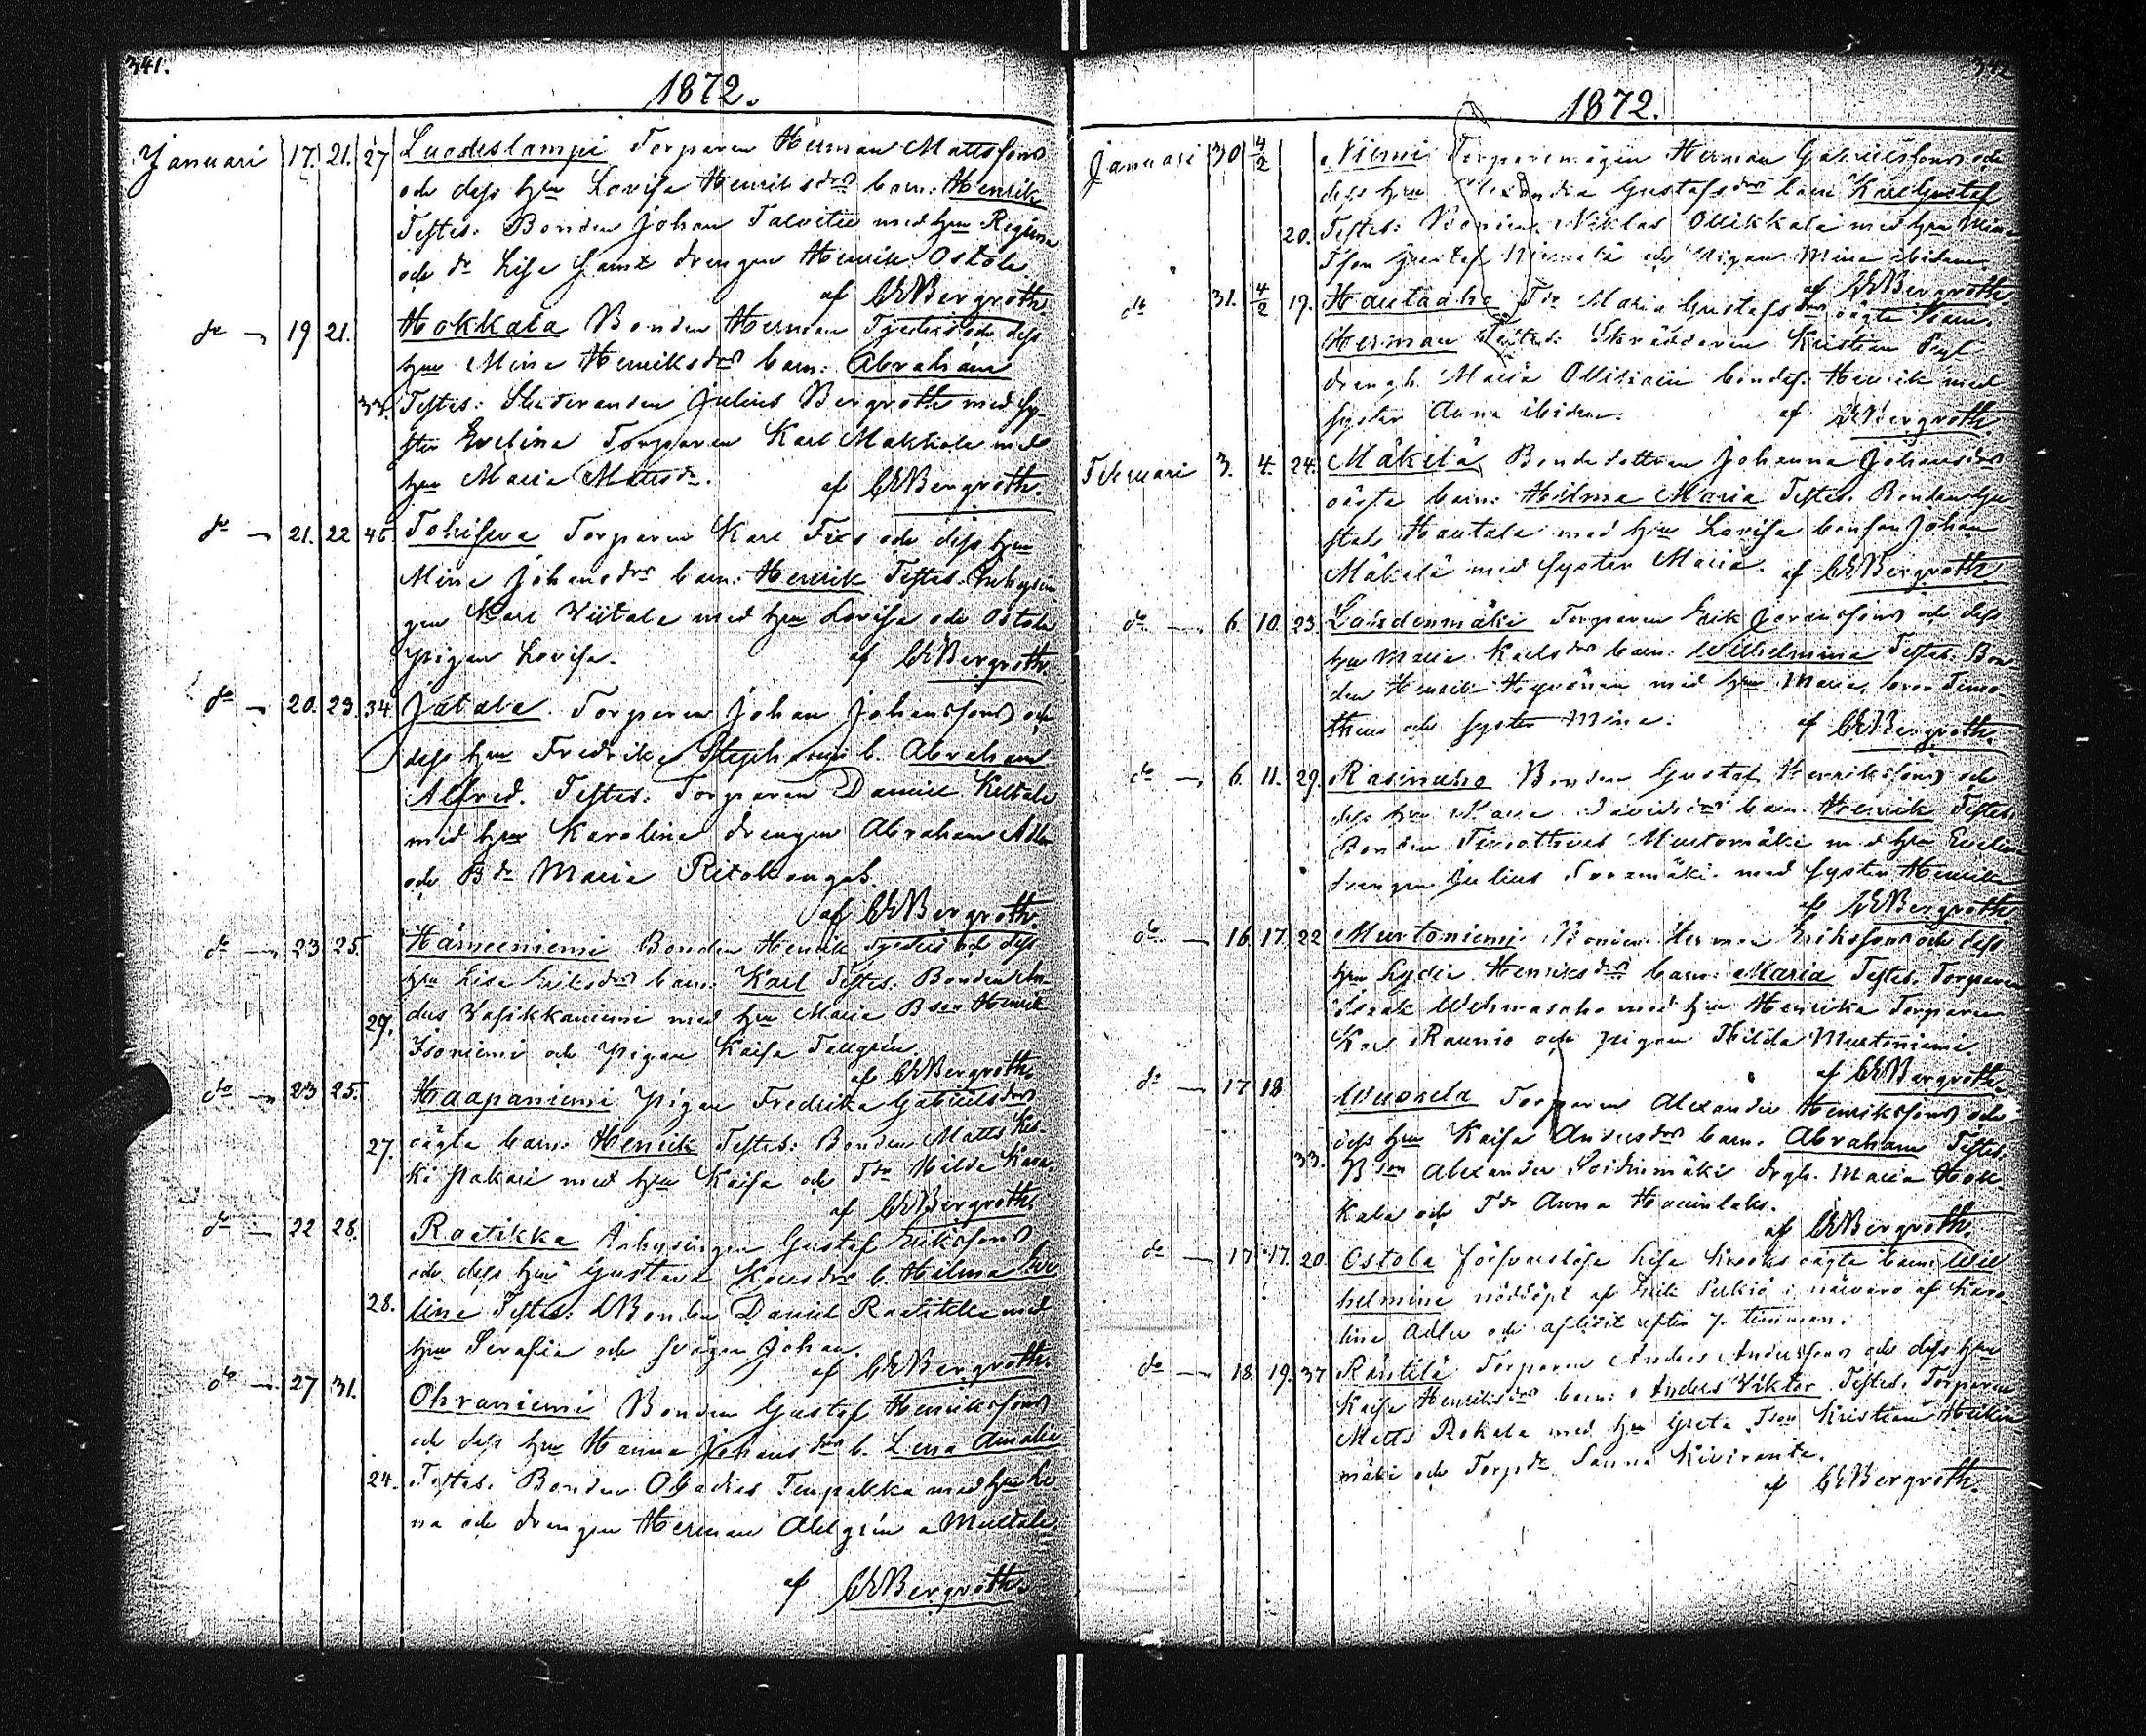 341.
1872.
Januari 17. 21. 27 Luodeslampi Torparen Herman Mattsson
och dess hru Lovisa Henriksdr barn: Henrik
Testes: Bonden Johan Talvitie med hru Regina
och dr Lisa samt drengen Henrik Ostola.
af CEBergroth.
do 19 21. Hokkala Bonden Herman och dess
hru Mina Henriksdr barn: Abraham
33. Testes: Studeranden Julius Bergroth med sy-
ster Evelina Torparen Karl Makkola med
hru Maria Mattsdr. af CEBergroth.
do 21. 22 45. Torparen Karl och dess hru
Mina Johansdr barn: Henrik Testes. Inhysin
gen Karl Viitala med hru Lovisa och Ostola
pigan Lovisa. af CEBergroth.
do 20. 23. 34 Jätala. Torparen Johan Johansson och
dess hru Fredrika b. Abraham
Alfred. Testes: Torparen Daniel
med hru Karolina drengen Abraham Adler
och Bdr Maria Ritokangas.
af CEBergroth.
do 23 25. Hämeeniemi Bonden Henrik och dess
hru Lisa Eriksdr barn: Karl Testes: Bonden An-
29. ders Vasikkaniemi med hru Maria Bson Henrik
Isoniemi och pigan Kaisa Tallgrén
af CEBergroth.
do 23 25. Haapaniemi pigan Fredrika Gabrielsdr
27. oägta barn: Henrik Testes: Bonden Matts Kes-
ki pakari med hru Kaisa och Tdr Hilda
af CEBergroth.
do 22 28. Raatikka Inhysingen Gustaf Eriksson
och dess hru Gustava b. Hilma Eve
28. lina Testes: Bonden Daniel Raatikka med
hru Serafia och svågen Johan.
af CEBergroth.
do 27 31. Ohraniemi Bonden Gustaf Henriksson
och dess hru Hanna Johansdr b. Lena Amalia
24. Testes. Bonden med hru Le-
na och drengen Herman Ahlgrén a
af CEBergroth.
342
1872.
Januari 30 4/2 Niemi Herman Gabrielsson och
dess hru Alexandra Gustafsdr barn Karl Gustaf
20. Testes: Bonden Niklas Ollikkala med hru Mina
Tson Gustaf och pigan Mina ibidem.
af CEBergroth.
do 31. 4/2 19. Hautaaho Tdr Maria Gustafsdr oägta barn.
Herman Testes: Skräddaren Kristian
drengh. Maria Henrik med
syster Anna ibidem. af CEBergroth.
Februari 3. 4. 24. Mäkelä Bondedottren Johanna Johansdr
oägta barn: Hilma Maria Testes. Bonden Gu-
staf Hautala med hru Lovisa bonson Johan
Mäkelä med syster Maria. af CEBergroth
do 6. 10. 23. Loisdenmäki Torparen Erik och dess
hru Maria Karlsdr barn: Wilhelmina Testes: Bon-
den Henrik med hru Maria, bror Timo-
theus och syster Mina. af CEBergroth.
do 6. 11. 29. Rasinaho Bonden Gustaf Henriksson och
dess hru Maria Davidsdr barn: Henrik Testes.
Bonden Timotheus Murtomäki med hru Evelina
drengen Julius med syster Henrika
af CEBergroth
do 16. 17. 22 Murtoniemi Bonden Herman Eriksson och dess
hru Lydia Henriksdr barn: Maria Testes. Torparen
Isaak Wehmasaho med hru Henrika Torparen
Karl Raunio och pigan Hilda Murtoniemi.
af CEBergroth.
do 17 18 Wuorela Torparen Alexander Henriksson och
dess hru Kaisa Andersdr barn. Abraham Testes.
33. Bson Alexander Loidinmäki drgh. Maria Hok-
kala och Tdr Anna Haumlaks.
af CEBergroth.
do 17 17. 20 Ostola försvarslösa Lisa oägta barn: Wil
helmina nöddöpt af Erik i närvaro af Karo-
lina Adler och aflidit efter 7. timmar.
do 18. 19. 37 Räntilä Torparen Anders Andersson och dess hru
Kaisa Henriksdr barn: Anders Viktor Testes. Torparen
Matts Rekola med hru Greta Tson Kristian
mäki och Torpdr Sanna Kiviranta.
af CEBergroth.